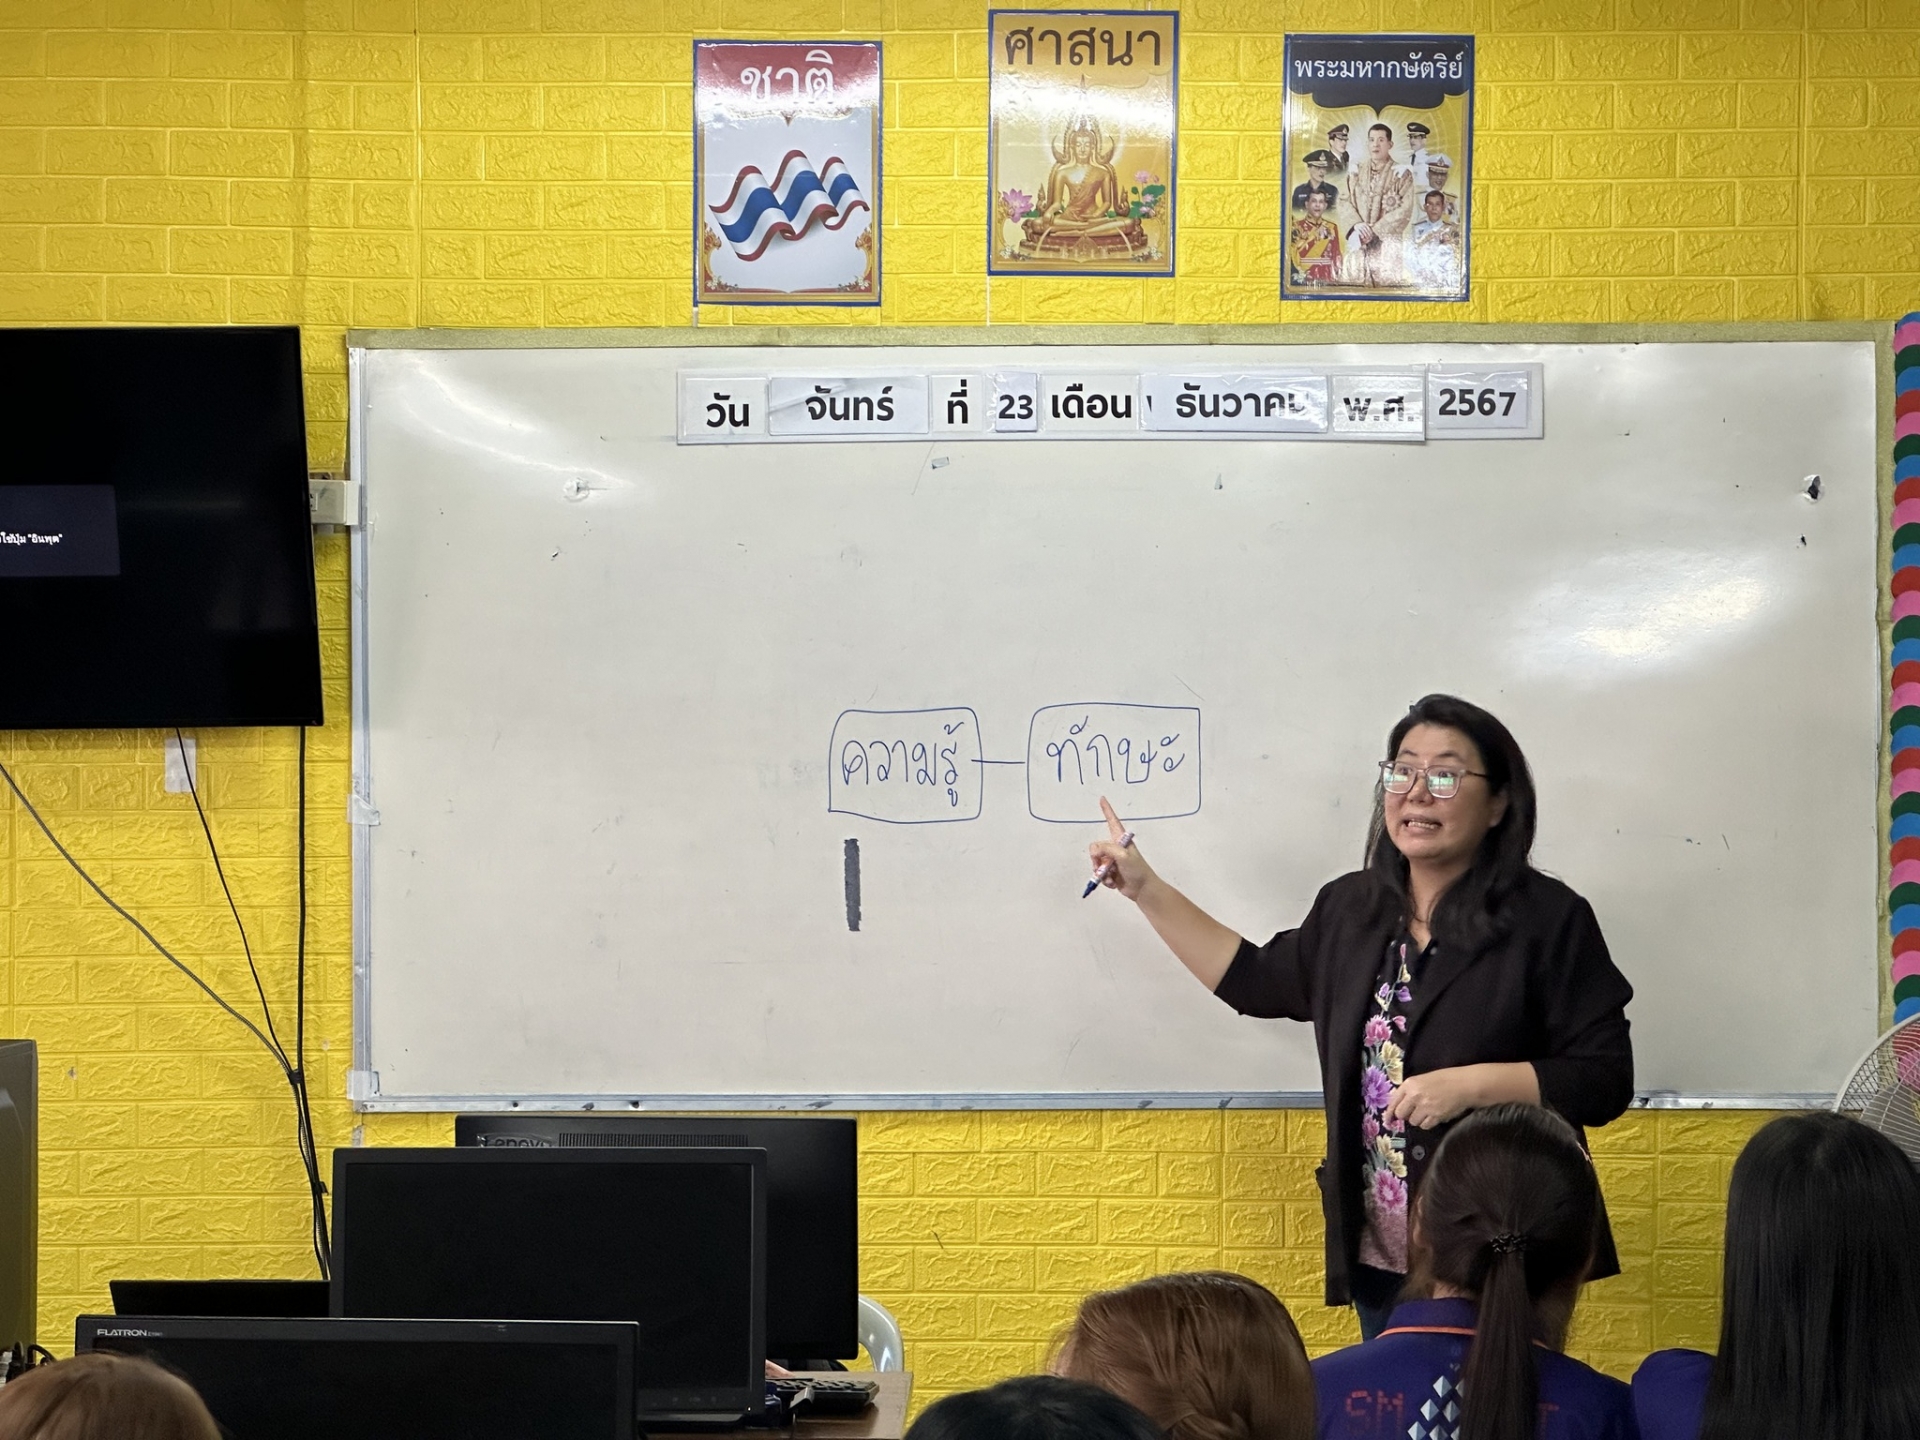 ชาติ
ศาสนา
พระมหากษัตริย์
วัน จันทร์ ที่ 23 เดือน ธันวาคม พ.ศ. 2567
ใช้ปุ่ม "อินพุต"
ความรู้ ทักษะ
Lenovo
FLATRON
SM